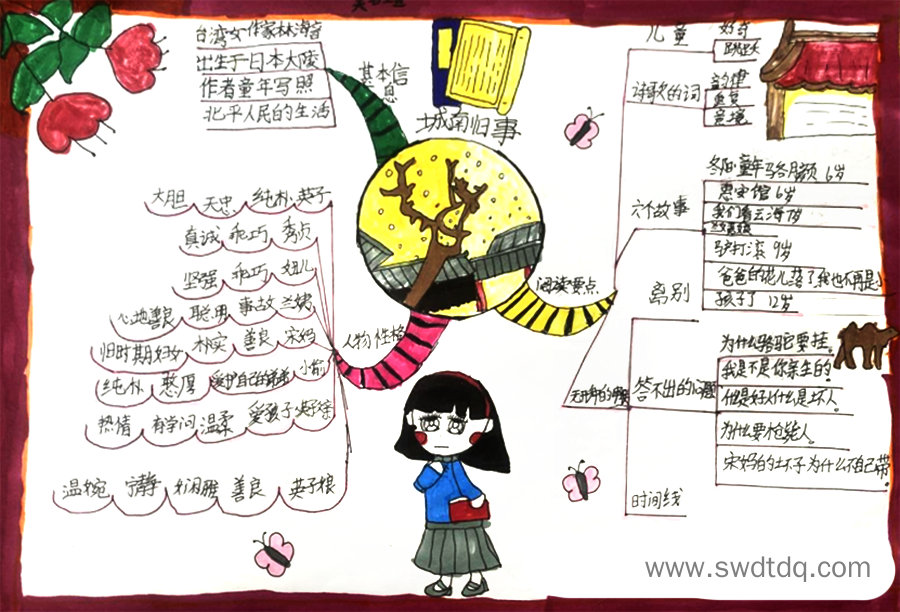 城南旧事
基本信息
台湾女作家林海音
出生于日本大阪
作者童年写照
北平人民的生活
人物性格
大胆 天忠 纯朴 英子
真诚 乖巧 秀贞
坚强 乖巧 妞儿
心地善良 聪明 事故 兰姨
旧时期妇女 朴实 善良 宋妈
纯朴 憨厚 爱护自己的弟弟 小偷
热情 有学问 温柔 爱孩子
温婉 宁静 娴雅 善良 英子娘
阅读要点
儿童
好奇
诗歌的词
韵律
重复
意境
六个故事
冬阳·童年·骆驼 6岁
惠安馆 6岁
我们看云海 7岁
驴打滚 9岁
爸爸的花儿落了我也不再是小
孩子了 12岁
离别
答不出的问题
为什么骆驼要挂。
我是不是你亲生的。
他是好人什么是坏人。
为什么要枪毙人。
宋妈的孩子为什么不自己带。
时间线
www.swdtdq.com